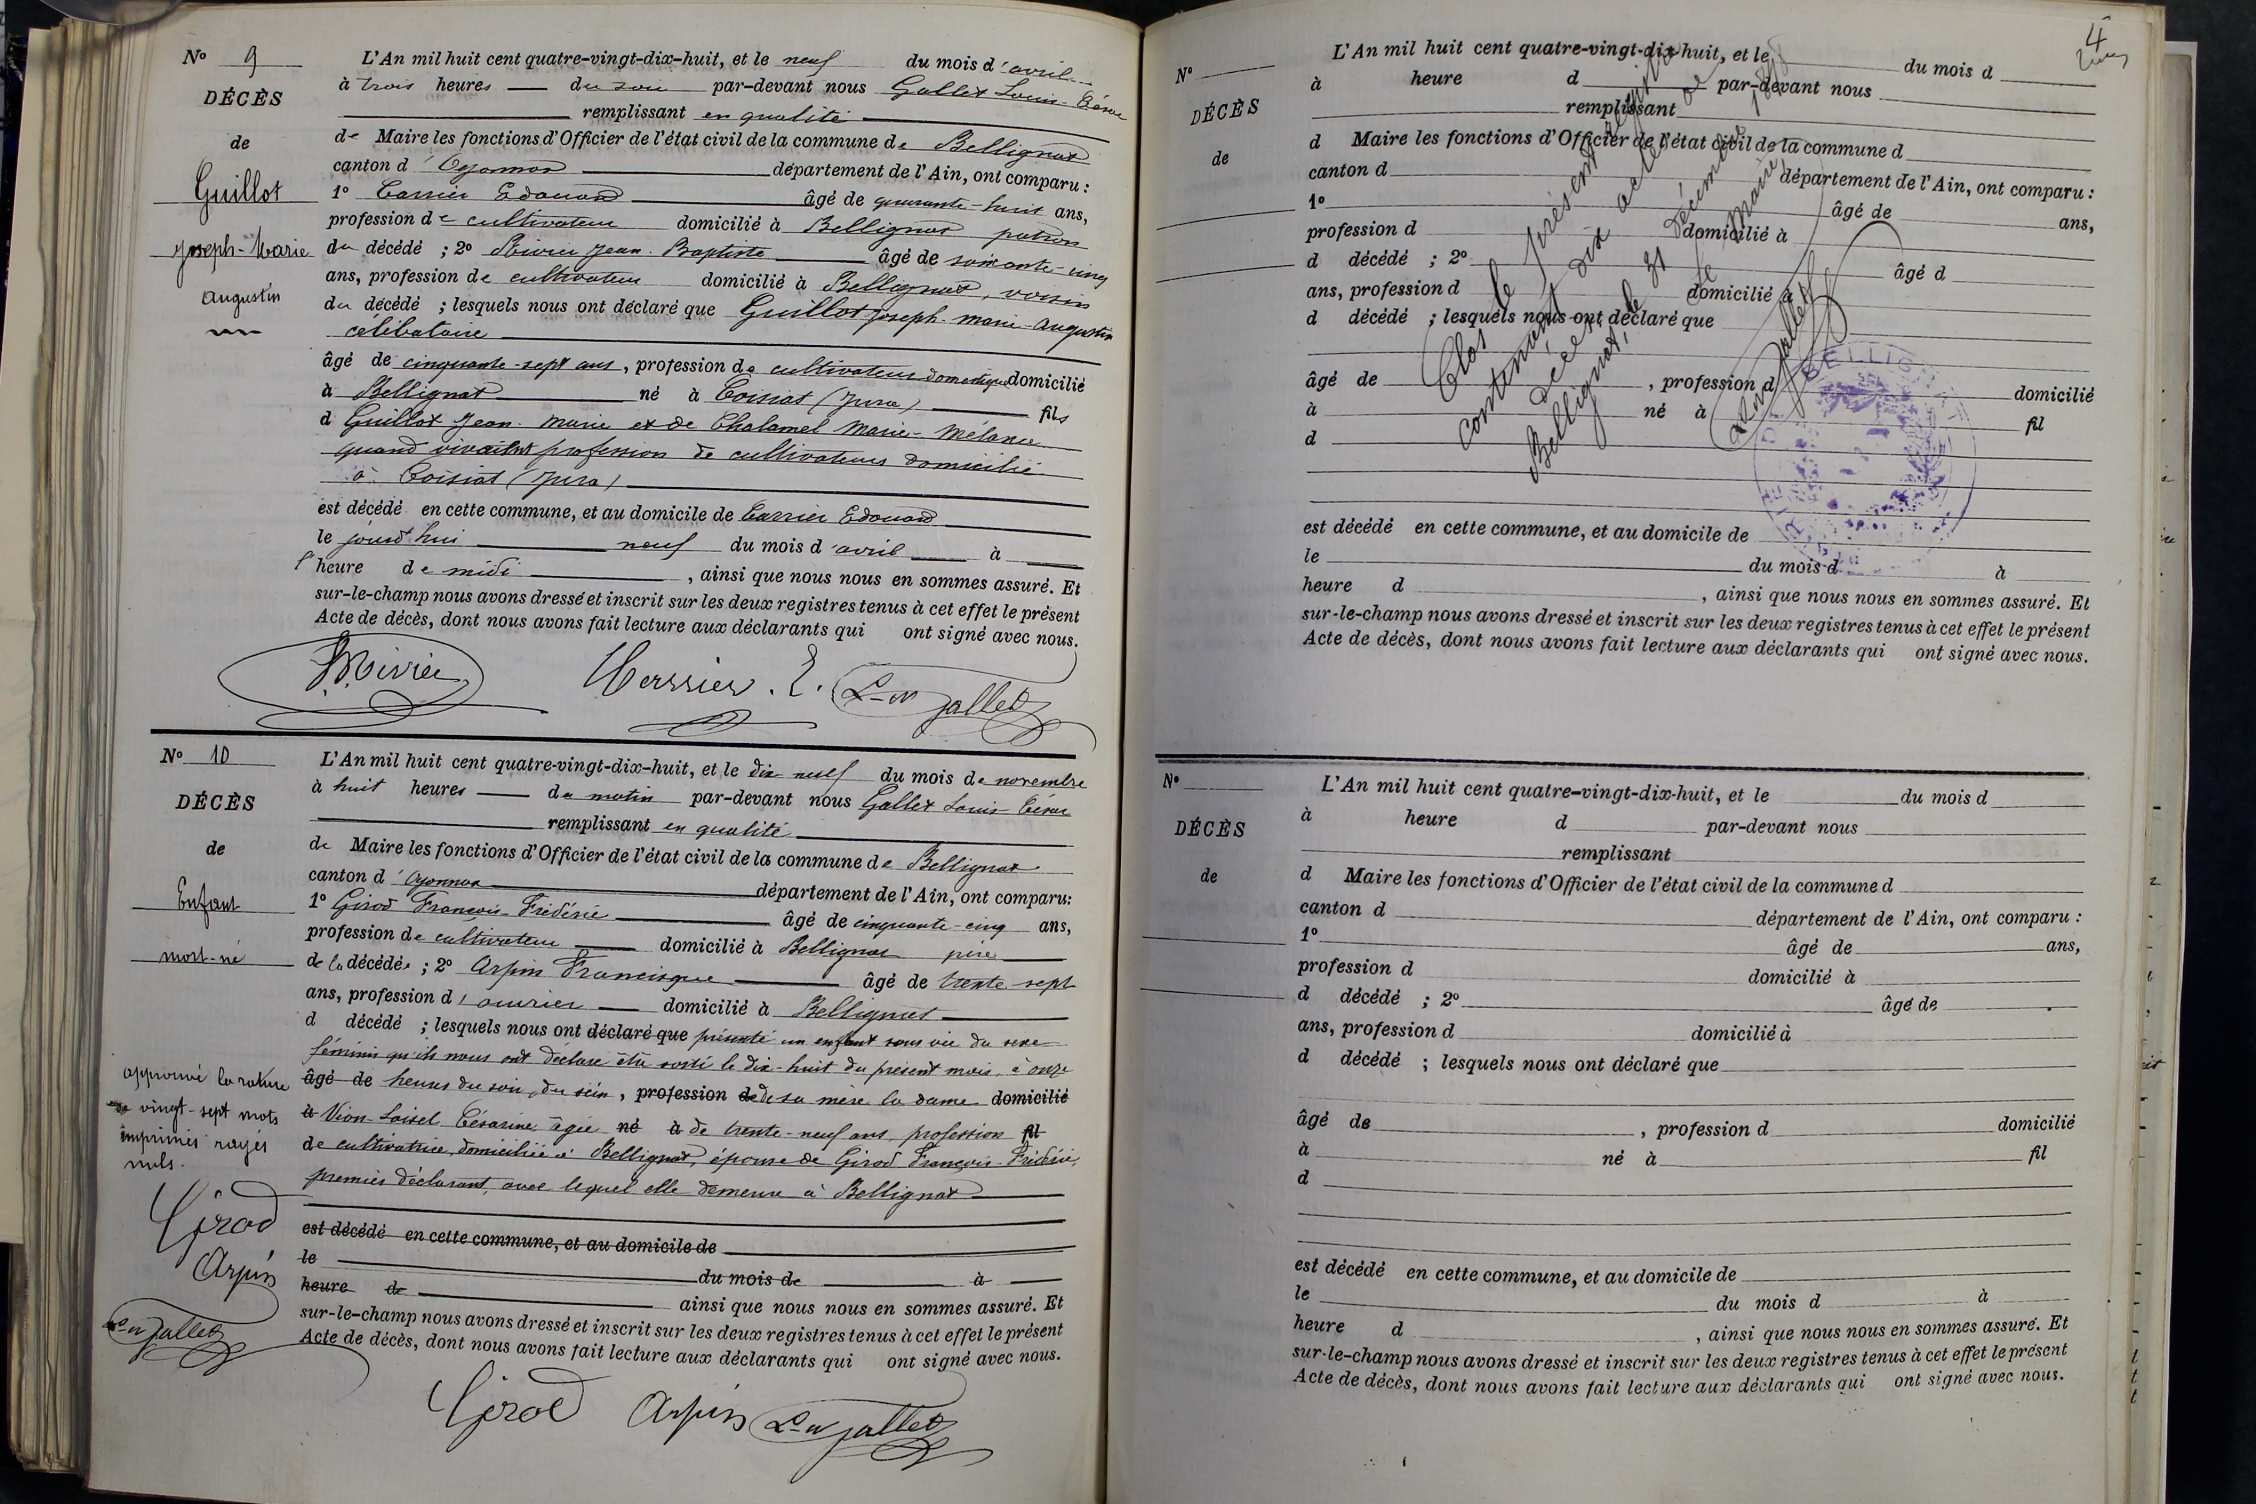 N° 9
DÉCÈS
de
Guillot
Joseph-Marie
Augustin
L'An mil huit cent quatre-vingt-dix-huit, et le neuf du mois d'avril
à trois heures du soir par-devant nous Gallet Louis-Césaire
remplissant en qualité
de Maire les fonctions d'Officier de l'état civil de la commune de Bellignat
canton d'Oyonnax département de l'Ain, ont comparu :
1° Carrier Edouard âgé de quarante-huit ans,
profession de cultivateur domicilié à Bellignat patron
du décédé ; 2° Rivier Jean-Baptiste âgé de soixante-cinq
ans, profession de cultivateur domicilié à Bellignat, voisin
du décédé ; lesquels nous ont déclaré que Guillot Joseph-Marie-Augustin
célibataire
âgé de cinquante-sept ans, profession de cultivateur domestique domicilié
à Bellignat né à Coisiat (Jura) fils
d Guillot Jean-Marie et de Chalamel Marie-Mélanie
quand vivaient profession de cultivateurs domicilié
à Coisiat (Jura)
est décédé en cette commune, et au domicile de Carrier Edouard
le jourd'hui neuf du mois d'avril à
l'heure de midi, ainsi que nous nous en sommes assuré. Et
sur-le-champ nous avons dressé et inscrit sur les deux registres tenus à cet effet le présent
Acte de décès, dont nous avons fait lecture aux déclarants qui ont signé avec nous.
Rivier E. Gallet
N° 10
DÉCÈS
de
Enfant
mort-né
L'An mil huit cent quatre-vingt-dix-huit, et le dix neuf du mois de novembre
à huit heures du matin par-devant nous Gallet Louis Césaire
remplissant en qualité
de Maire les fonctions d'Officier de l'état civil de la commune de Bellignat
canton d'Oyonnax département de l'Ain, ont comparu :
1° Girod François-Frédéric âgé de cinquante-cinq ans,
profession de cultivateur domicilié à Bellignat père
de la décédée ; 2° Arpin Francisque âgé de trente sept
ans, profession d'ouvrier domicilié à Bellignat
d décédé ; lesquels nous ont déclaré que présenté un enfant sans vie du sexe
féminin qu'ils nous ont déclaré être sorti le dix-huit du présent mois, à onze
âgé de heures du soir, du sein, profession de de sa mère la dame domicilié
à Vion-Loisel Césarine, âgée né à de trente-neuf ans, profession fil
de cultivatrice, domiciliée à Bellignat, épouse de Girod François-Frédéric,
premier déclarant, avec lequel elle demeure à Bellignat
est décédé en cette commune, et au domicile de
le du mois de à
heure de ainsi que nous nous en sommes assuré. Et
sur-le-champ nous avons dressé et inscrit sur les deux registres tenus à cet effet le présent
Acte de décès, dont nous avons fait lecture aux déclarants qui ont signé avec nous.
approuvé la rature
de vingt-sept mots
imprimés rayés
nuls.
Girod
Arpin
Gallet
Girod Arpin Gallet
4
N°
DÉCÈS
de
L'An mil huit cent quatre-vingt-dix-huit, et le du mois d
à heure d par-devant nous
remplissant
d Maire les fonctions d'Officier de l'état civil de la commune d
canton d département de l'Ain, ont comparu :
1° âgé de ans,
profession d domicilié à
d décédé ; 2° âgé d
ans, profession d domicilié à
d décédé ; lesquels nous ont déclaré que
âgé de , profession d domicilié
à né à fil
d
est décédé en cette commune, et au domicile de
le du mois d à
heure d , ainsi que nous nous en sommes assuré. Et
sur-le-champ nous avons dressé et inscrit sur les deux registres tenus à cet effet le présent
Acte de décès, dont nous avons fait lecture aux déclarants qui ont signé avec nous.
Clos le présent registre
contenant dix actes de
décès.
Bellignat, le 31 décembre 1898
Le Maire,
Gallet
MAIRIE DE BELLIGNAT
N°
DÉCÈS
de
L'An mil huit cent quatre-vingt-dix-huit, et le du mois d
à heure d par-devant nous
remplissant
d Maire les fonctions d'Officier de l'état civil de la commune d
canton d département de l'Ain, ont comparu :
1° âgé de ans,
profession d domicilié à
d décédé ; 2° âgé de
ans, profession d domicilié à
d décédé ; lesquels nous ont déclaré que
âgé de , profession d domicilié
à né à fil
d
est décédé en cette commune, et au domicile de
le du mois d à
heure d , ainsi que nous nous en sommes assuré. Et
sur-le-champ nous avons dressé et inscrit sur les deux registres tenus à cet effet le présent
Acte de décès, dont nous avons fait lecture aux déclarants qui ont signé avec nous.